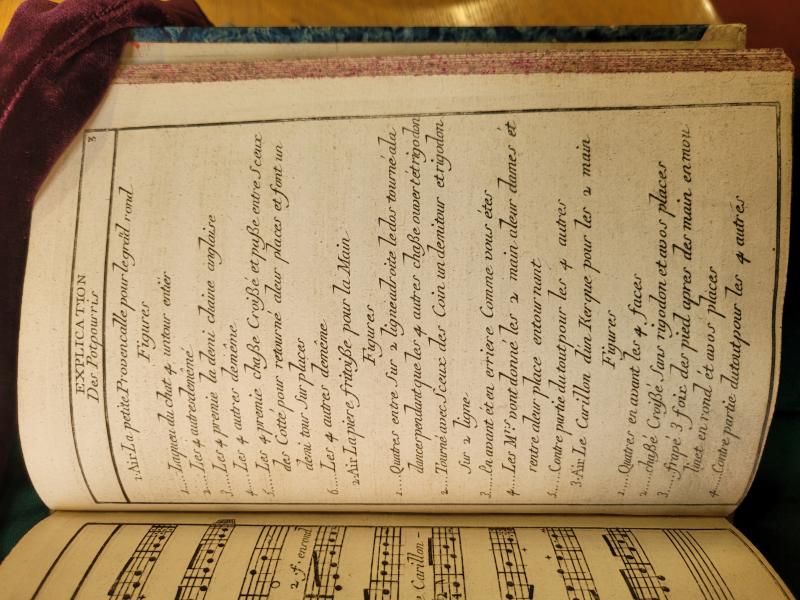 3
EXPLICATION
Des Potpourris
1 Air La petite Provencalle pour le grād rond
Figures
1.... Laqueu du chat 4 untour entier
2.... Les 4 autres demême
3.... Les 4 premie la demi chaine anglaise
4.... Les 4 autres demême
5.... Les 4 premie chaße Croißé et paße entre Sceux
des Cotté pour retourné aleur places et font un
demi tour Sur places
6.... Les 4 autres demême
2 Air La piere fritoyße pour la Main
Figures
1.... Quatres entre Sur 2 ligneadroite le dos tourné ala
dance pendant que les 4 autres chaße ouvert et rigodon
2.... Tourné avec Sceux des Coin un demitour et rigodon
Sur 2 ligne
3.... En avant et en arriere Comme vous êtes
4.... Les Mrs. vont donné les 2 main aleur dames et
rentre aleur place entournant
5.... Contre partie dutout pour les 4 autres
3 Air Le Carillon dun Kerque pour les 2 main
Figures
1.... Quatres en avant les 4 faces
2.... chaßé Croißé Sans rigodon et avos places
3.... frapé 3 foix des pied apres des main en mou
linet en rond et avos places
4.... Contre partie dutout pour les 4 autres
2. f. en rond
Carillon